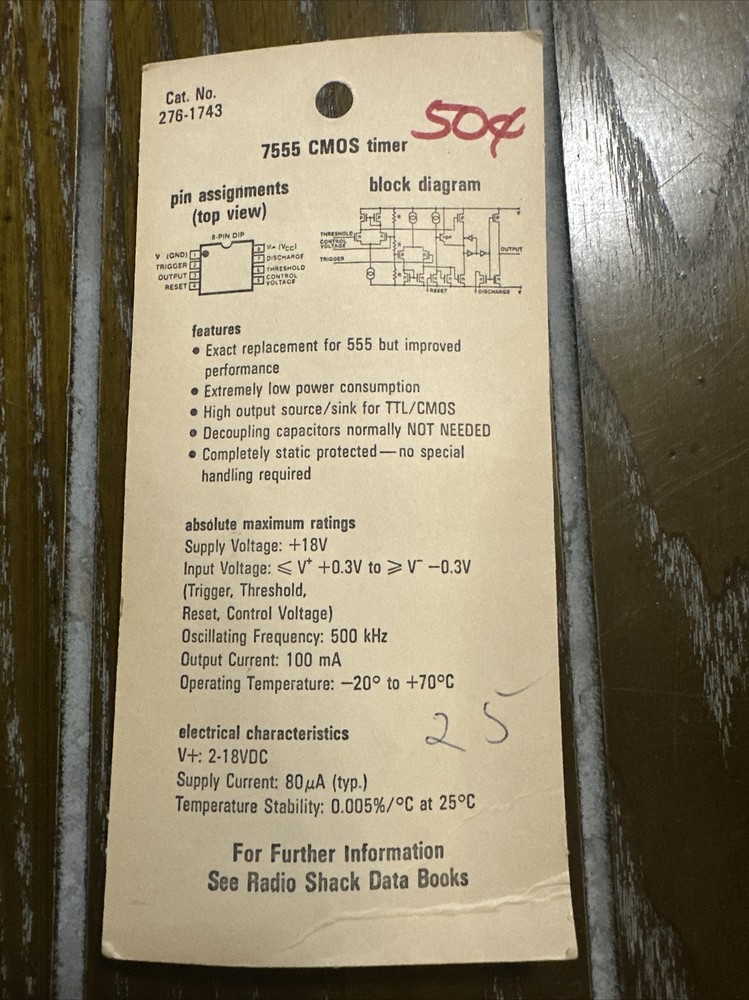 Cat. No.
276-1743
50¢
7555 CMOS timer
pin assignments
(top view)
block diagram
8-PIN DIP
V (GND) 1
TRIGGER 2
OUTPUT 3
RESET 4
8 V+ (VCC)
7 DISCHARGE
6 THRESHOLD
5 CONTROL
VOLTAGE
THRESHOLD
CONTROL
VOLTAGE
TRIGGER
OUTPUT
RESET
DISCHARGE
features
• Exact replacement for 555 but improved
performance
• Extremely low power consumption
• High output source/sink for TTL/CMOS
• Decoupling capacitors normally NOT NEEDED
• Completely static protected—no special
handling required
absolute maximum ratings
Supply Voltage: +18V
Input Voltage: ≤ V⁺ +0.3V to ≥ V⁻ −0.3V
(Trigger, Threshold,
Reset, Control Voltage)
Oscillating Frequency: 500 kHz
Output Current: 100 mA
Operating Temperature: −20° to +70°C
25
electrical characteristics
V+: 2-18VDC
Supply Current: 80µA (typ.)
Temperature Stability: 0.005%/°C at 25°C
For Further Information
See Radio Shack Data Books